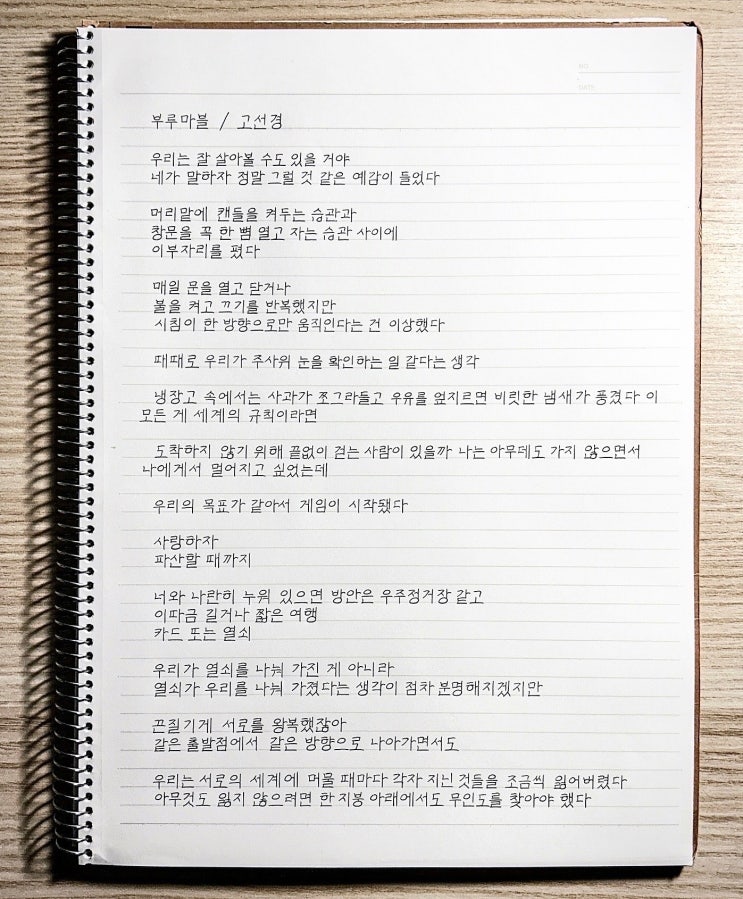 NO
DATE
부루마블 / 고선경
우리는 잘 살아볼 수도 있을 거야
네가 말하자 정말 그럴 것 같은 예감이 들었다
머리맡에 캔들을 켜두는 습관과
창문을 꼭 한 뼘 열고 자는 습관 사이에
이부자리를 폈다
매일 문을 열고 닫거나
불을 켜고 끄기를 반복했지만
시침이 한 방향으로만 움직인다는 건 이상했다
때때로 우리가 주사위 눈을 확인하는 일 같다는 생각
냉장고 속에서는 사과가 쪼그라들고 우유를 엎지르면 비릿한 냄새가 풍겼다 이
모든 게 세계의 규칙이라면
도착하지 않기 위해 끝없이 걷는 사람이 있을까 나는 아무데도 가지 않으면서
나에게서 멀어지고 싶었는데
우리의 목표가 같아서 게임이 시작됐다
사랑하자
파산할 때까지
너와 나란히 누워 있으면 방안은 우주정거장 같고
이따금 길거나 짧은 여행
카드 또는 열쇠
우리가 열쇠를 나눠 가진 게 아니라
열쇠가 우리를 나눠 가졌다는 생각이 점차 분명해지겠지만
끈질기게 서로를 왕복했잖아
같은 출발점에서 같은 방향으로 나아가면서도
우리는 서로의 세계에 머물 때마다 각자 지닌 것들을 조금씩 잃어버렸다
아무것도 잃지 않으려면 한 지붕 아래에서도 무인도를 찾아야 했다